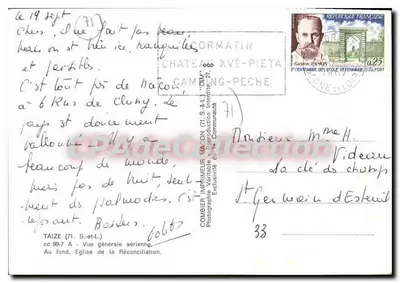 le 19 sept
71
Chers, il ne fait pas beau,
mais on est bien ici, tranquilles
et
C'est tout près de Macon,
à 6 Kms de Cluny. Le
pays est doucement
vallonné. Il y a
beaucoup de monde,
mais pas de bruit, seulement
des psalmodies. C'est
reposant. Baisers
TAIZE (71. S.-et-L.)
cc 99-7 A - Vue générale aérienne.
Au fond, Eglise de la Réconciliation.
COMBIER IMPRIMEUR MACON (71. S.-et-L.) "CIM"
Photographie Véritable - Reproduction Interdite
Exclusivité de la Communauté
CORMATIN
CHATEAU XVIe-PIETA
CAMPING-PECHE
REPUBLIQUE FRANÇAISE
GASTON RAMON
0,25
2e CENTENAIRE DE L'ECOLE VETERINAIRE D'ALFORT
71
Monsieur Mme H.
Videau
La clé des champs
St Germain d'Esteuil
33